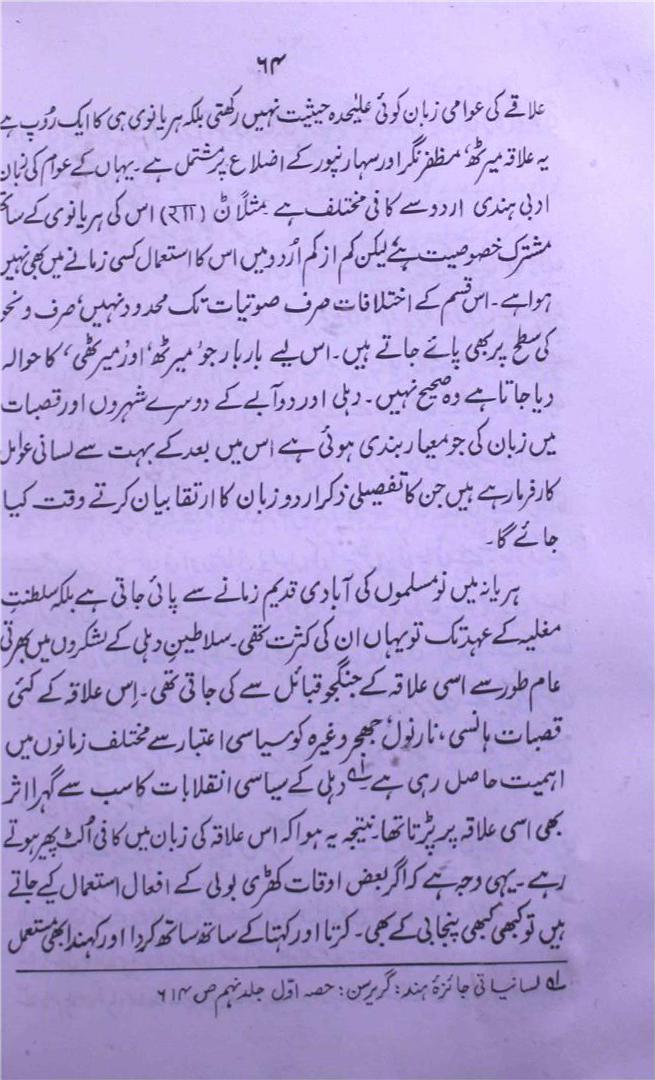 ۶۴
علاقے کی عوامی زبان کوئی علیٰحدہ حیثیت نہیں رکھتی بلکہ ہریانوی ہی کا ایک رُوپ ہے
یہ علاقہ میرٹھ، مظفر نگر اور سہارنپور کے اضلاع پر مشتمل ہے۔ یہاں کے عوام کی زبان
ادبی ہندی اردو سے کافی مختلف ہے مثلاً نْ (रारा) اس کی ہریانوی کے ساتھ
مشترک خصوصیت ہے لیکن کم از کم اُردو میں اس کا استعمال کسی زمانے میں بھی نہیں
ہوا ہے۔ اس قسم کے اختلافات صرف صوتیات تک محدود نہیں، صرف و نحو
کی سطح پر بھی پائے جاتے ہیں۔ اس لیے بار بار جو ’میرٹھ‘ اور ’میرٹھی‘ کا حوالہ
دیا جاتا ہے وہ صحیح نہیں۔ دہلی اور دوآبے کے دوسرے شہروں اور قصبات
میں زبان کی جو معیار بندی ہوئی ہے اس میں بعد کے بہت سے لسانی عوامل
کارفرما رہے ہیں جن کا تفصیلی ذکر اردو زبان کا ارتقا بیان کرتے وقت کیا
جائے گا۔
ہریانہ میں نو مسلموں کی آبادی قدیم زمانے سے پائی جاتی ہے بلکہ سلطنتِ
مغلیہ کے عہد تک تو یہاں ان کی کثرت تھی۔ سلاطینِ دہلی کے لشکروں میں بھرتی
عام طور سے اسی علاقہ کے جنگجو قبائل سے کی جاتی تھی۔ اِس علاقہ کے کئی
قصبات ہانسی، نارنول، جھجر وغیرہ کو سیاسی اعتبار سے مختلف زمانوں میں
اہمیت حاصل رہی ہے۔ ؎۱ دہلی کے سیاسی انقلابات کا سب سے گہرا اثر
بھی اسی علاقہ پر پڑتا تھا۔ نتیجہ یہ ہوا کہ اس علاقہ کی زبان میں کافی اُلٹ پھیر ہوتے
رہے۔ یہی وجہ ہے کہ اگر بعض اوقات کھڑی بولی کے افعال استعمال کیے جاتے
ہیں تو کبھی کبھی پنجابی کے بھی۔ کرتا اور کہتا کے ساتھ ساتھ کردا اور کہندا بھی مستعمل
؎۱ لسانیاتی جائزۂ ہند: گریرسن: حصہ اوّل جلد نہم ص ۶۱۴